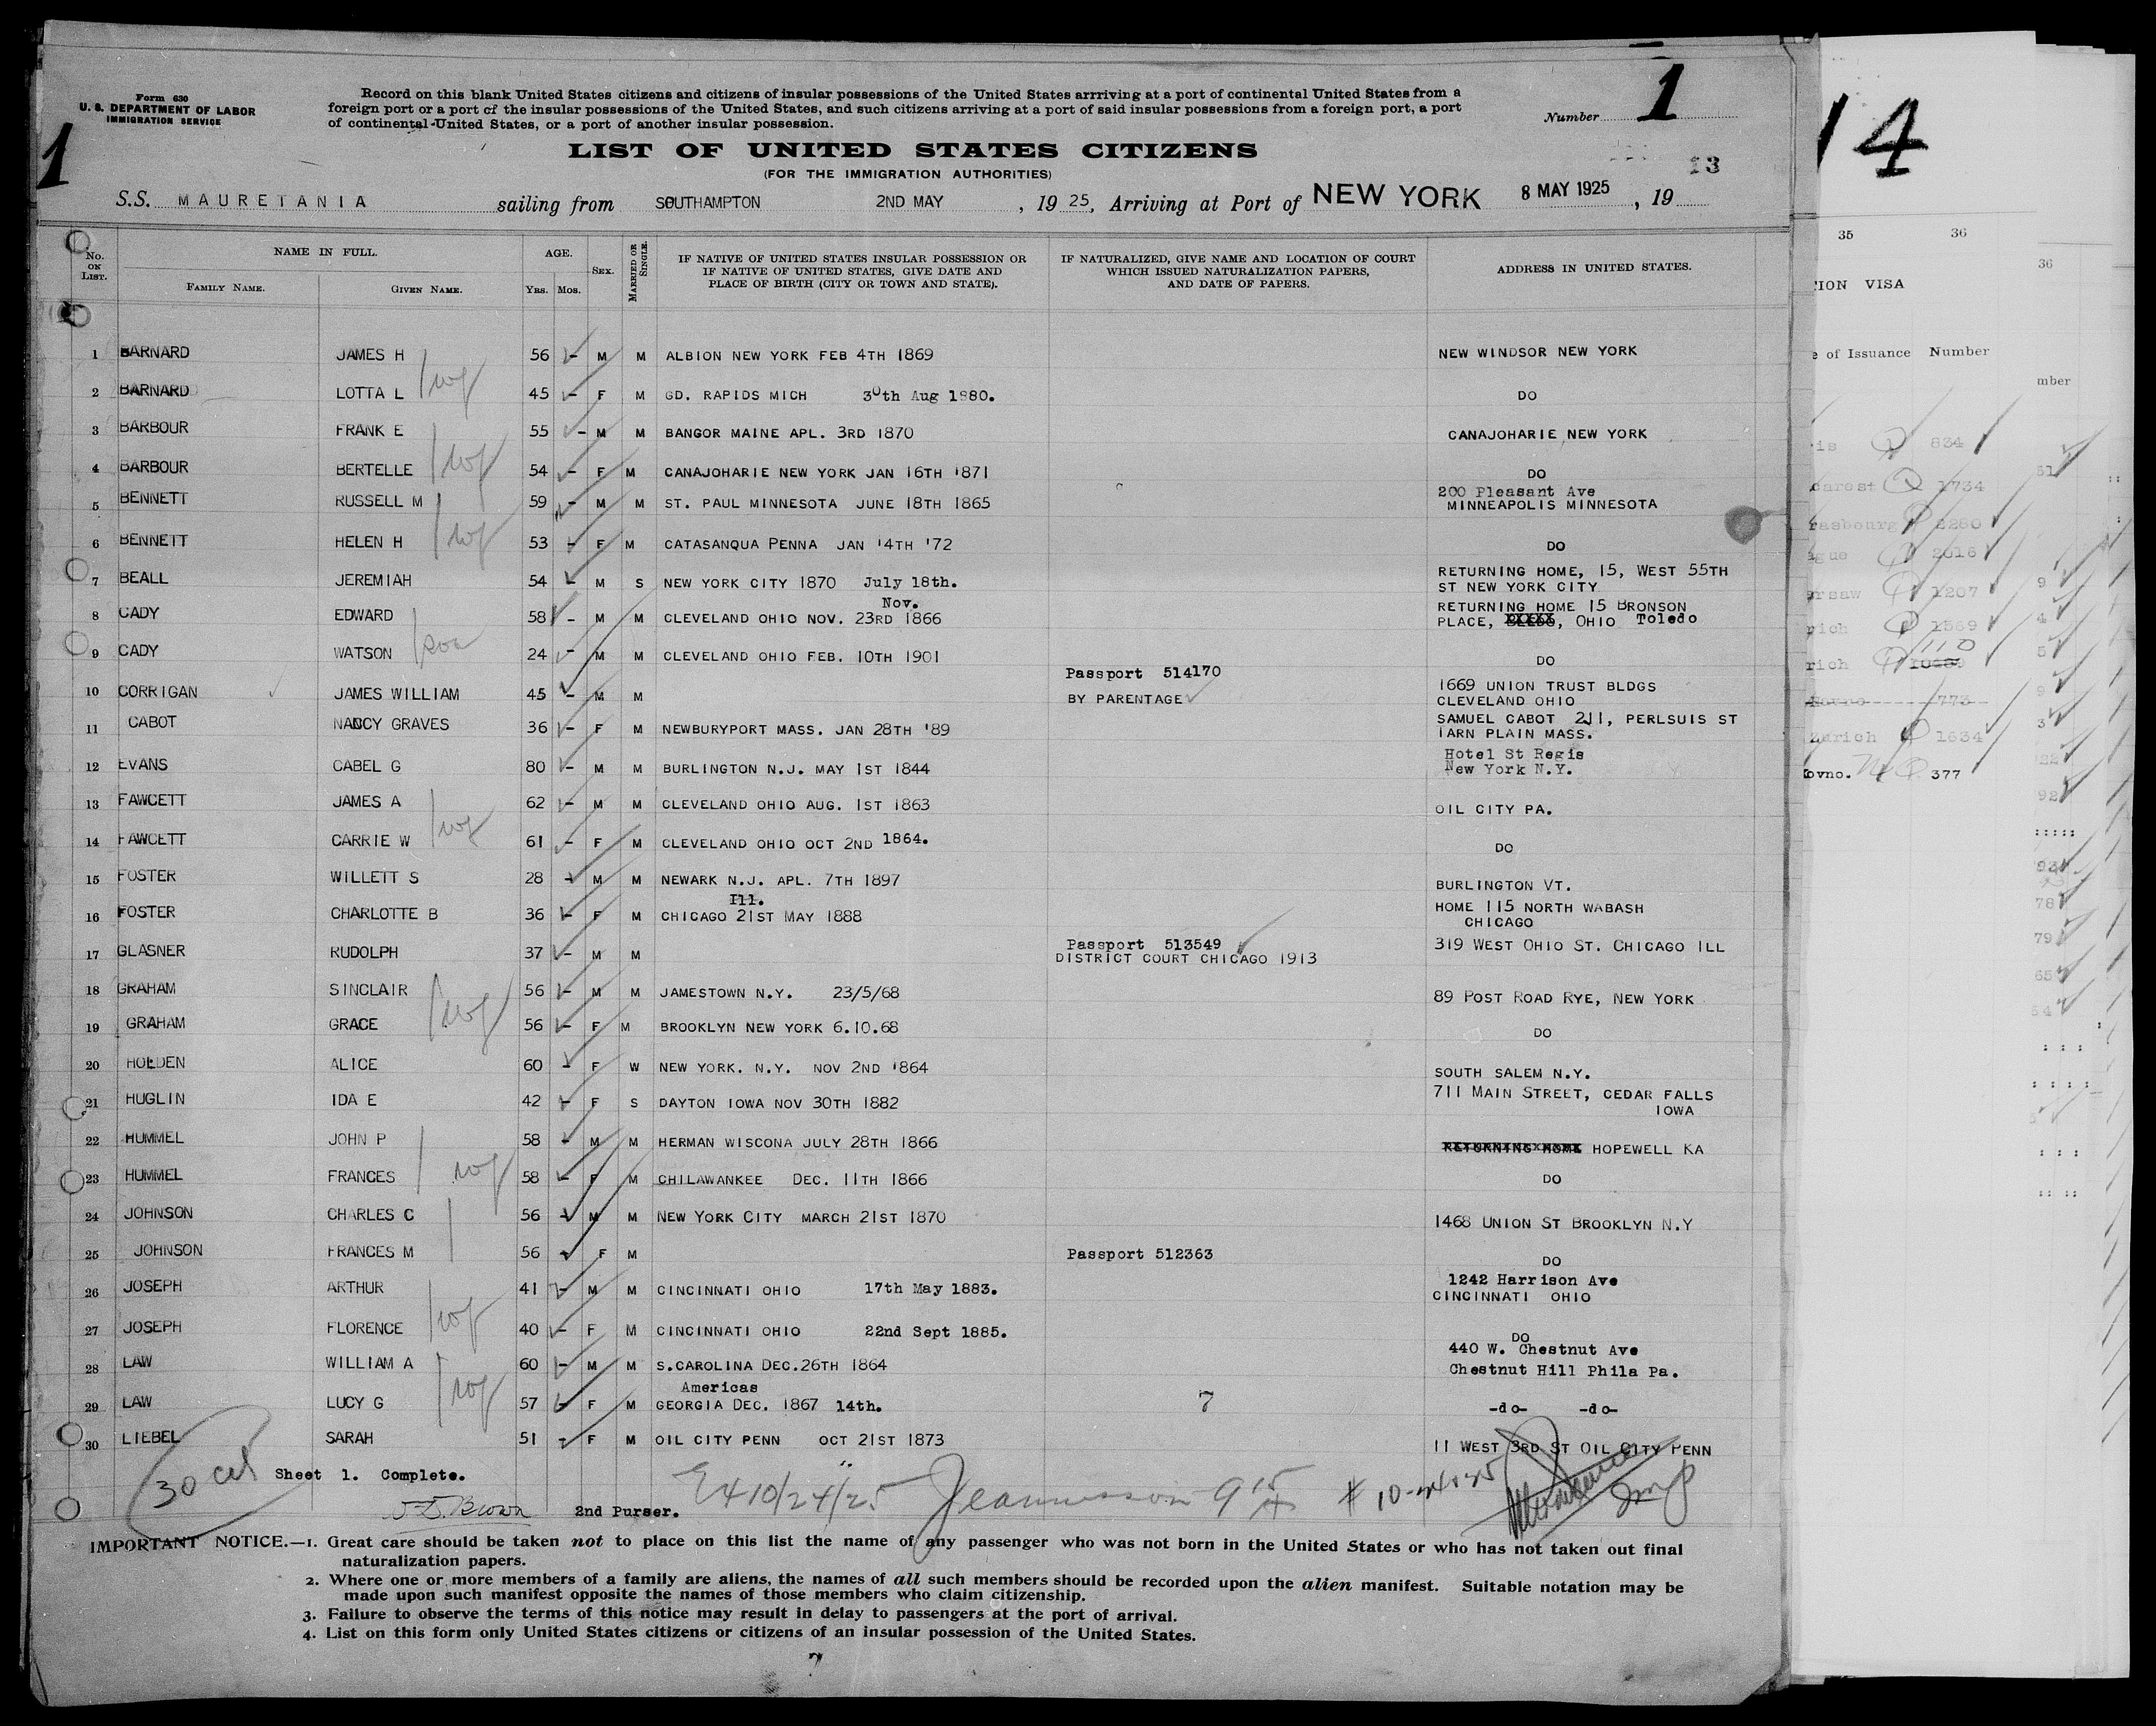 Form 630
U. S. DEPARTMENT OF LABOR
IMMIGRATION SERVICE
Record on this blank United States citizens and citizens of insular possessions of the United States arrriving at a port of continental United States from a
foreign port or a port of the insular possessions of the United States, and such citizens arriving at a port of said insular possessions from a foreign port, a port
of continental United States, or a port of another insular possession.
Number 1
1
14
LIST OF UNITED STATES CITIZENS
(FOR THE IMMIGRATION AUTHORITIES)
13
S.S. MAURETANIA sailing from SOUTHAMPTON 2ND MAY , 19 25, Arriving at Port of NEW YORK 8 MAY 1925 , 19
No. ON LIST. NAME IN FULL. FAMILY NAME. GIVEN NAME. AGE. YRS. MOS. SEX. MARRIED OR SINGLE.
IF NATIVE OF UNITED STATES INSULAR POSSESSION OR
IF NATIVE OF UNITED STATES, GIVE DATE AND
PLACE OF BIRTH (CITY OR TOWN AND STATE).
IF NATURALIZED, GIVE NAME AND LOCATION OF COURT
WHICH ISSUED NATURALIZATION PAPERS,
AND DATE OF PAPERS.
ADDRESS IN UNITED STATES.
1 BARNARD JAMES H 56 - M M ALBION NEW YORK FEB 4TH 1869 NEW WINDSOR NEW YORK
2 BARNARD LOTTA L 45 - F M GD. RAPIDS MICH 30th Aug 1880. DO
3 BARBOUR FRANK E 55 - M M BANGOR MAINE APL. 3RD 1870 CANAJOHARIE NEW YORK
4 BARBOUR BERTELLE 54 - F M CANAJOHARIE NEW YORK JAN 16TH 1871 DO
5 BENNETT RUSSELL M 59 - M M ST. PAUL MINNESOTA JUNE 18TH 1865 200 Pleasant Ave
MINNEAPOLIS MINNESOTA
6 BENNETT HELEN H 53 - F M CATASANQUA PENNA JAN 14TH '72 DO
7 BEALL JEREMIAH 54 - M S NEW YORK CITY 1870 July 18th. RETURNING HOME, 15, WEST 55TH
ST NEW YORK CITY
Nov.
8 CADY EDWARD 58 - M M CLEVELAND OHIO NOV. 23RD 1866 RETURNING HOME 15 BRONSON
PLACE, , OHIO Toledo
9 CADY WATSON 24 - M M CLEVELAND OHIO FEB. 10TH 1901 DO
Passport 514170
10 CORRIGAN JAMES WILLIAM 45 - M M BY PARENTAGE 1669 UNION TRUST BLDGS
CLEVELAND OHIO
11 CABOT NANCY GRAVES 36 - F M NEWBURYPORT MASS. JAN 28TH '89 SAMUEL CABOT 211, PERLSUIS ST
IARN PLAIN MASS.
12 EVANS CABEL G 80 - M M BURLINGTON N.J. MAY 1ST 1844 Hotel St Regis
New York N.Y.
13 FAWCETT JAMES A 62 - M M CLEVELAND OHIO AUG. 1ST 1863 OIL CITY PA.
14 FAWCETT CARRIE W 61 - F M CLEVELAND OHIO OCT 2ND 1864. DO
15 FOSTER WILLETT S 28 - M M NEWARK N.J. APL. 7TH 1897 BURLINGTON VT.
Ill.
16 FOSTER CHARLOTTE B 36 - F M CHICAGO 21ST MAY 1888 HOME 115 NORTH WABASH
CHICAGO
Passport 513549
17 GLASNER RUDOLPH 37 - M M DISTRICT COURT CHICAGO 1913 319 WEST OHIO ST. CHICAGO ILL
18 GRAHAM SINCLAIR 56 - M M JAMESTOWN N.Y. 23/5/68 89 POST ROAD RYE, NEW YORK
19 GRAHAM GRACE 56 - F M BROOKLYN NEW YORK 6.10.68 DO
20 HOLDEN ALICE 60 - F W NEW YORK. N.Y. NOV 2ND 1864 SOUTH SALEM N.Y.
21 HUGLIN IDA E 42 - F S DAYTON IOWA NOV 30TH 1882 711 MAIN STREET, CEDAR FALLS
IOWA
22 HUMMEL JOHN P 58 - M M HERMAN WISCONA JULY 28TH 1866 RETURNING HOME HOPEWELL KA
23 HUMMEL FRANCES 58 - F M CHILAWANKEE DEC. 11TH 1866 DO
24 JOHNSON CHARLES C 56 - M M NEW YORK CITY MARCH 21ST 1870 1468 UNION ST BROOKLYN N.Y
25 JOHNSON FRANCES M 56 - F M Passport 512363 DO
26 JOSEPH ARTHUR 41 - M M CINCINNATI OHIO 17th May 1883. 1242 Harrison Ave
CINCINNATI OHIO
27 JOSEPH FLORENCE 40 - F M CINCINNATI OHIO 22nd Sept 1885. DO
28 LAW WILLIAM A 60 - M M S.CAROLINA DEC.26TH 1864 440 W. Chestnut Ave
Chestnut Hill Phila Pa.
Americas
29 LAW LUCY G 57 - F M GEORGIA DEC. 1867 14th. 7 -do- -do-
30 LIEBEL SARAH 51 - F M OIL CITY PENN OCT 21ST 1873 11 WEST 3RD ST OIL CITY PENN
Sheet 1. Complete.
2nd Purser.
10/24/25
IMPORTANT NOTICE.—1. Great care should be taken not to place on this list the name of any passenger who was not born in the United States or who has not taken out final
naturalization papers.
2. Where one or more members of a family are aliens, the names of all such members should be recorded upon the alien manifest. Suitable notation may be
made upon such manifest opposite the names of those members who claim citizenship.
3. Failure to observe the terms of this notice may result in delay to passengers at the port of arrival.
4. List on this form only United States citizens or citizens of an insular possession of the United States.
35 36
36
ION VISA
e of Issuance Number
mber
834
1734
rasbourg 2280
gue 2616
rsaw 1207
rich 1569
rich 110
773
Zurich 1634
ovno. 377